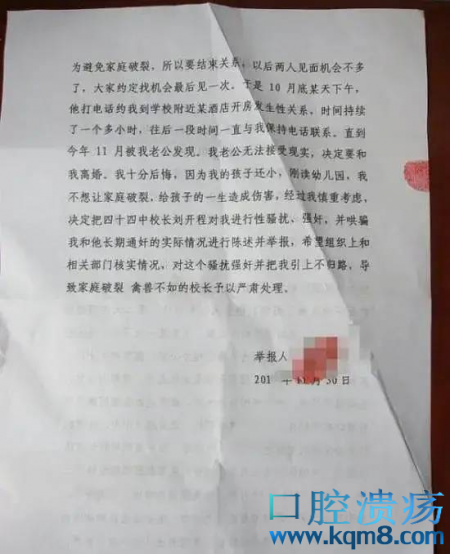 为避免家庭破裂，所以要结束关系，以后两人见面机会不多
了，大家约定找机会最后见一次。于是 10 月底某天下午，
他打电话约我到学校附近某酒店开房发生性关系，时间持续
了一个多小时，往后一段时间一直与我保持电话联系。直到
今年 11 月被我老公发现。我老公无法接受现实，决定要和
我离婚。我十分后悔，因为我的孩子还小，刚读幼儿园，我
不想让家庭破裂、给孩子的一生造成伤害，经过我慎重考虑，
决定把四十四中校长刘开程对我进行性骚扰、强奸，并哄骗
我和他长期通奸的实际情况进行陈述并举报，希望组织上和
相关部门核实情况，对这个骚扰强奸并把我引上不归路、导
致家庭破裂 禽兽不如的校长予以严肃处理。
举报人
201 年 11 月 30 日
口腔溃疡
www.kqm8.com